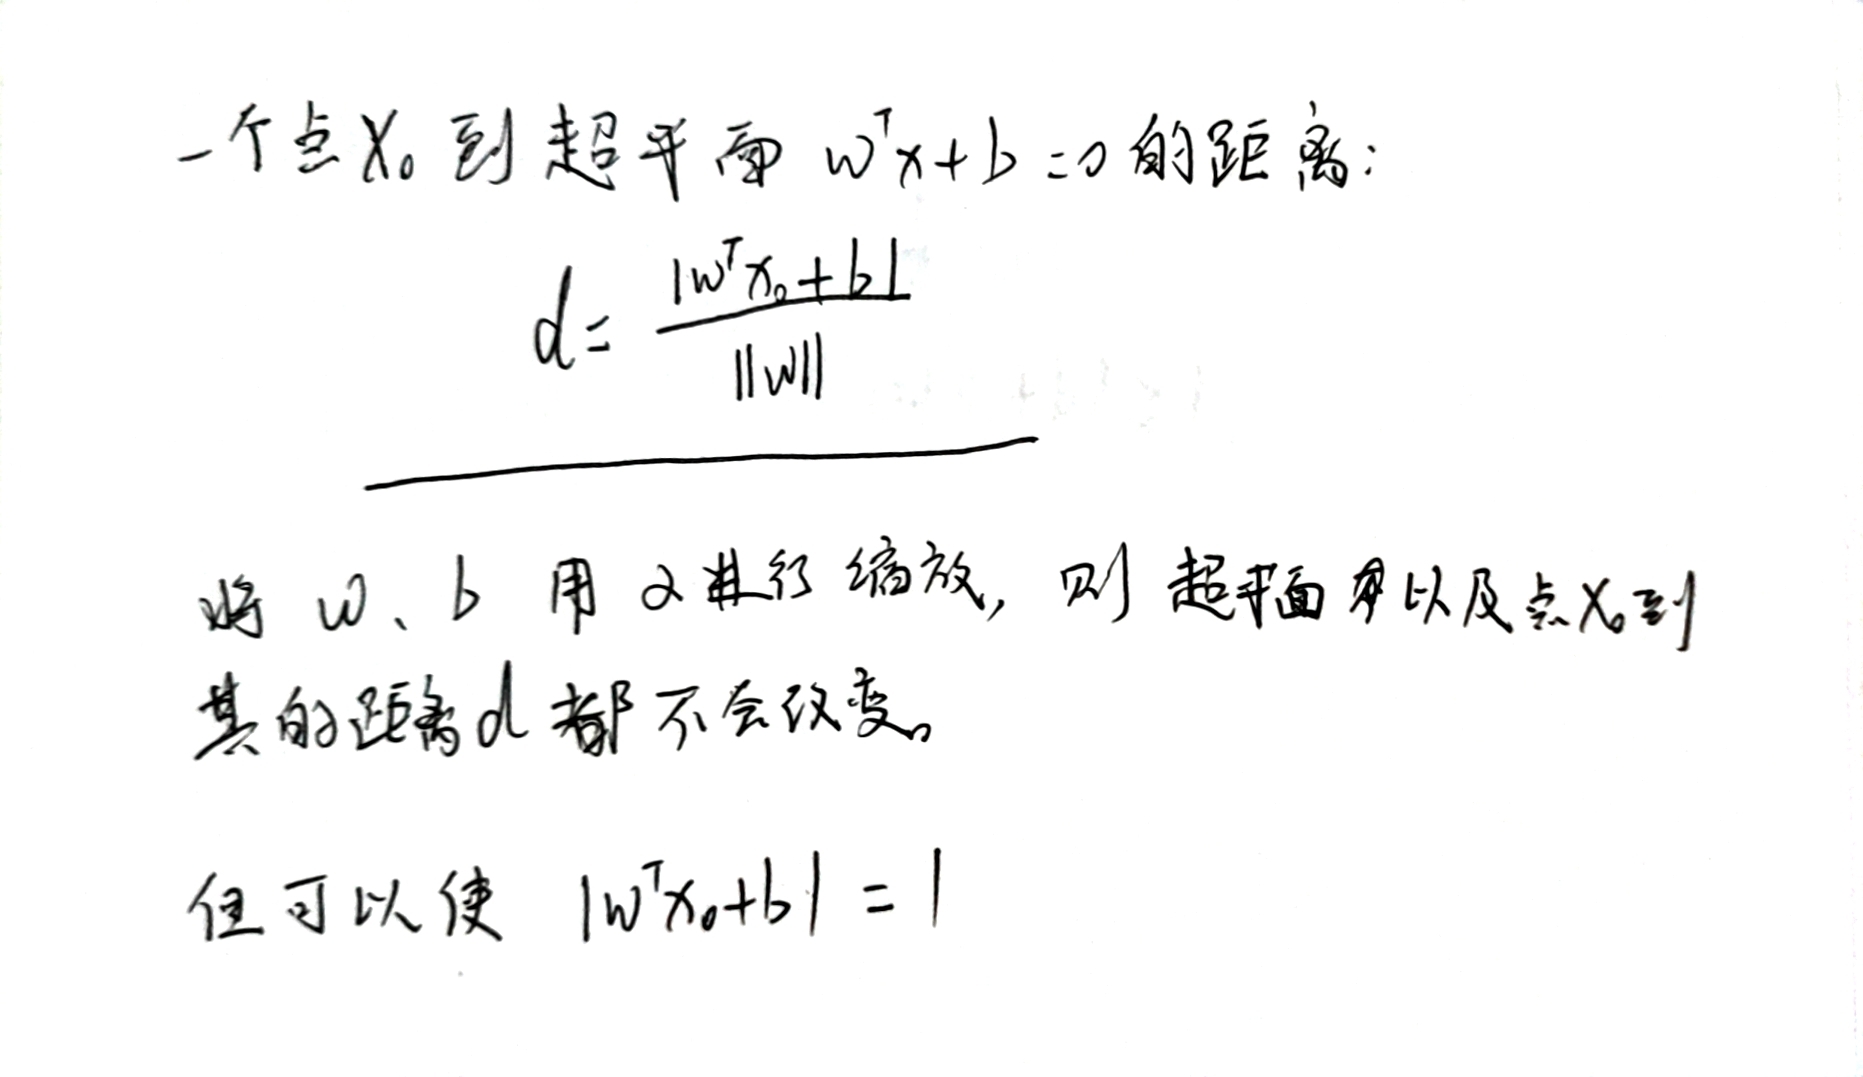 一个点 X₀ 到超平面 wᵀx+b=0 的距离:
d= |wᵀx₀+b| / ||w||
将 w、b 用 α 进行缩放, 则超平面以及点 X₀ 到
其的距离 d 都不会改变。
但可以使 |wᵀx₀+b| = 1